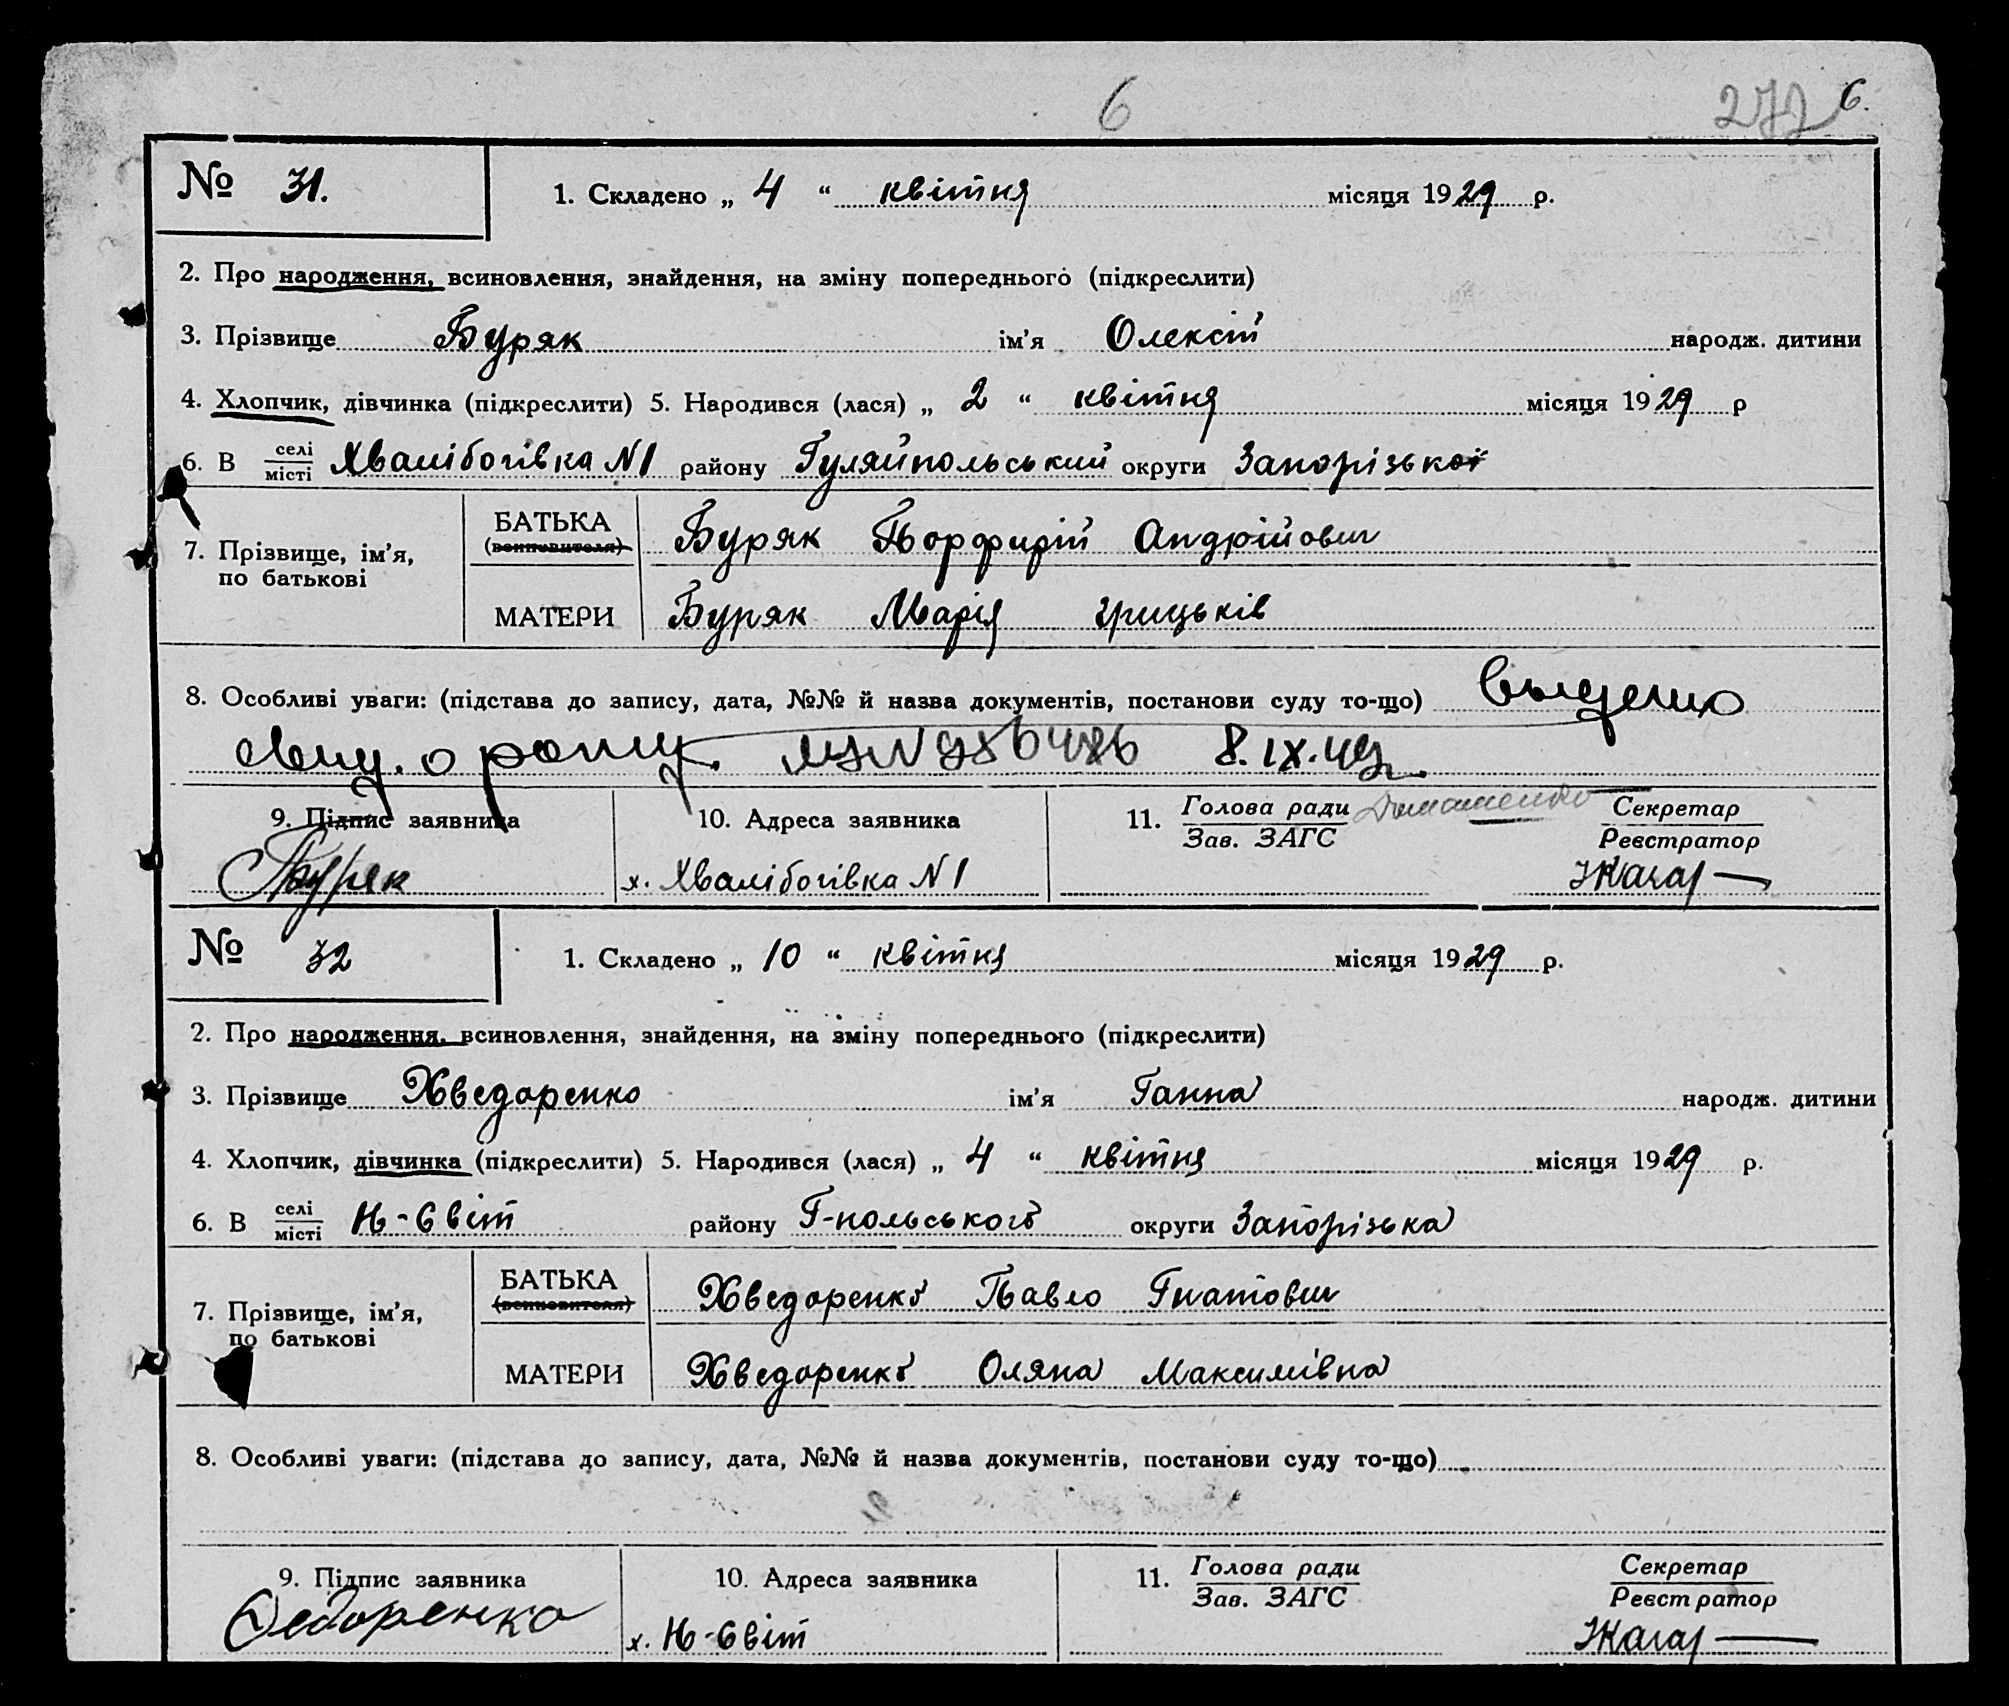 6
272 6.
№ 31.
1. Складено „ 4 “ квітня місяця 1929 р.
2. Про народження, всиновлення, знайдення, на зміну попереднього (підкреслити)
3. Прізвище Буряк ім'я Олексій народж. дитини
4. Хлопчик, дівчинка (підкреслити) 5. Народився (лася) „ 2 “ квітня місяця 1929 р
6. В селі місті Хвалібогівка N1 району Гуляйпольський округи Запорізької
7. Прізвище, ім'я, по батькові
БАТЬКА (всиновителя) Буряк Порфирій Андрійович
МАТЕРИ Буряк Марія Грицьків
8. Особливі уваги: (підстава до запису, дата, №№ й назва документів, постанови суду то-що)
8.IX.49
9. Підпис заявника
10. Адреса заявника
11. Голова ради Зав. ЗАГС
Секретар Реєстратор
Буряк
х. Хвалібогівка N1
№ 32
1. Складено „ 10 “ квітня місяця 1929 р.
2. Про народження, всиновлення, знайдення, на зміну попереднього (підкреслити)
3. Прізвище Хведоренко ім'я Ганна народж. дитини
4. Хлопчик, дівчинка (підкреслити) 5. Народився (лася) „ 4 “ квітня місяця 1929 р.
6. В селі місті Н-Світ району Г-польського округи Запорізька
7. Прізвище, ім'я, по батькові
БАТЬКА (всиновителя) Хведоренко Павло Гнатович
МАТЕРИ Хведоренко Оляна Максимівна
8. Особливі уваги: (підстава до запису, дата, №№ й назва документів, постанови суду то-що)
9. Підпис заявника
10. Адреса заявника
11. Голова ради Зав. ЗАГС
Секретар Реєстратор
Федоренко
х. Н-Світ